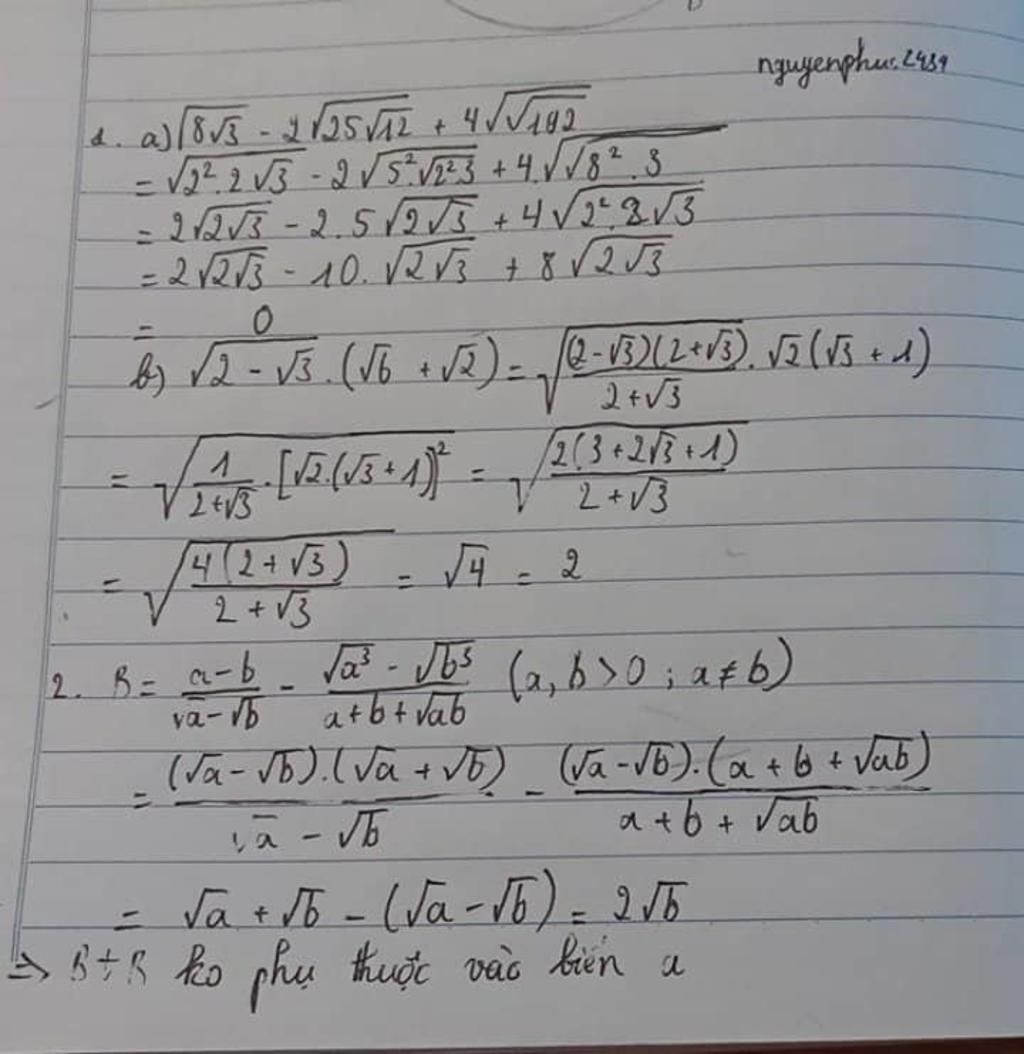 nguyenphuc2439
1. a) √(8√3) - 2√(25√12) + 4√(√192)
= √(2².2√3) - 2√(5².√(2².3)) + 4.√(√(8².3))
= 2√(2√3) - 2.5√(2√3) + 4√(2².2√3)
= 2√(2√3) - 10.√(2√3) + 8√(2√3)
= 0
b) √(2-√3).(√6 + √2) = √((2-√3)(2+√3)/(2+√3)).√2(√3 + 1)
= √(1/(2+√3).[√2.(√3+1)]²) = √(2(3+2√3+1)/(2+√3))
= √(4(2+√3)/(2+√3)) = √4 = 2
2. B = (a-b)/(√a-√b) - (√a³ - √b³)/(a+b+√ab) (a, b > 0 ; a ≠ b)
= (√a-√b).(√a+√b)/(√a-√b) - (√a-√b).(a+b+√ab)/(a+b+√ab)
= √a + √b - (√a-√b) = 2√b
=> ko phụ thuộc vào biến a